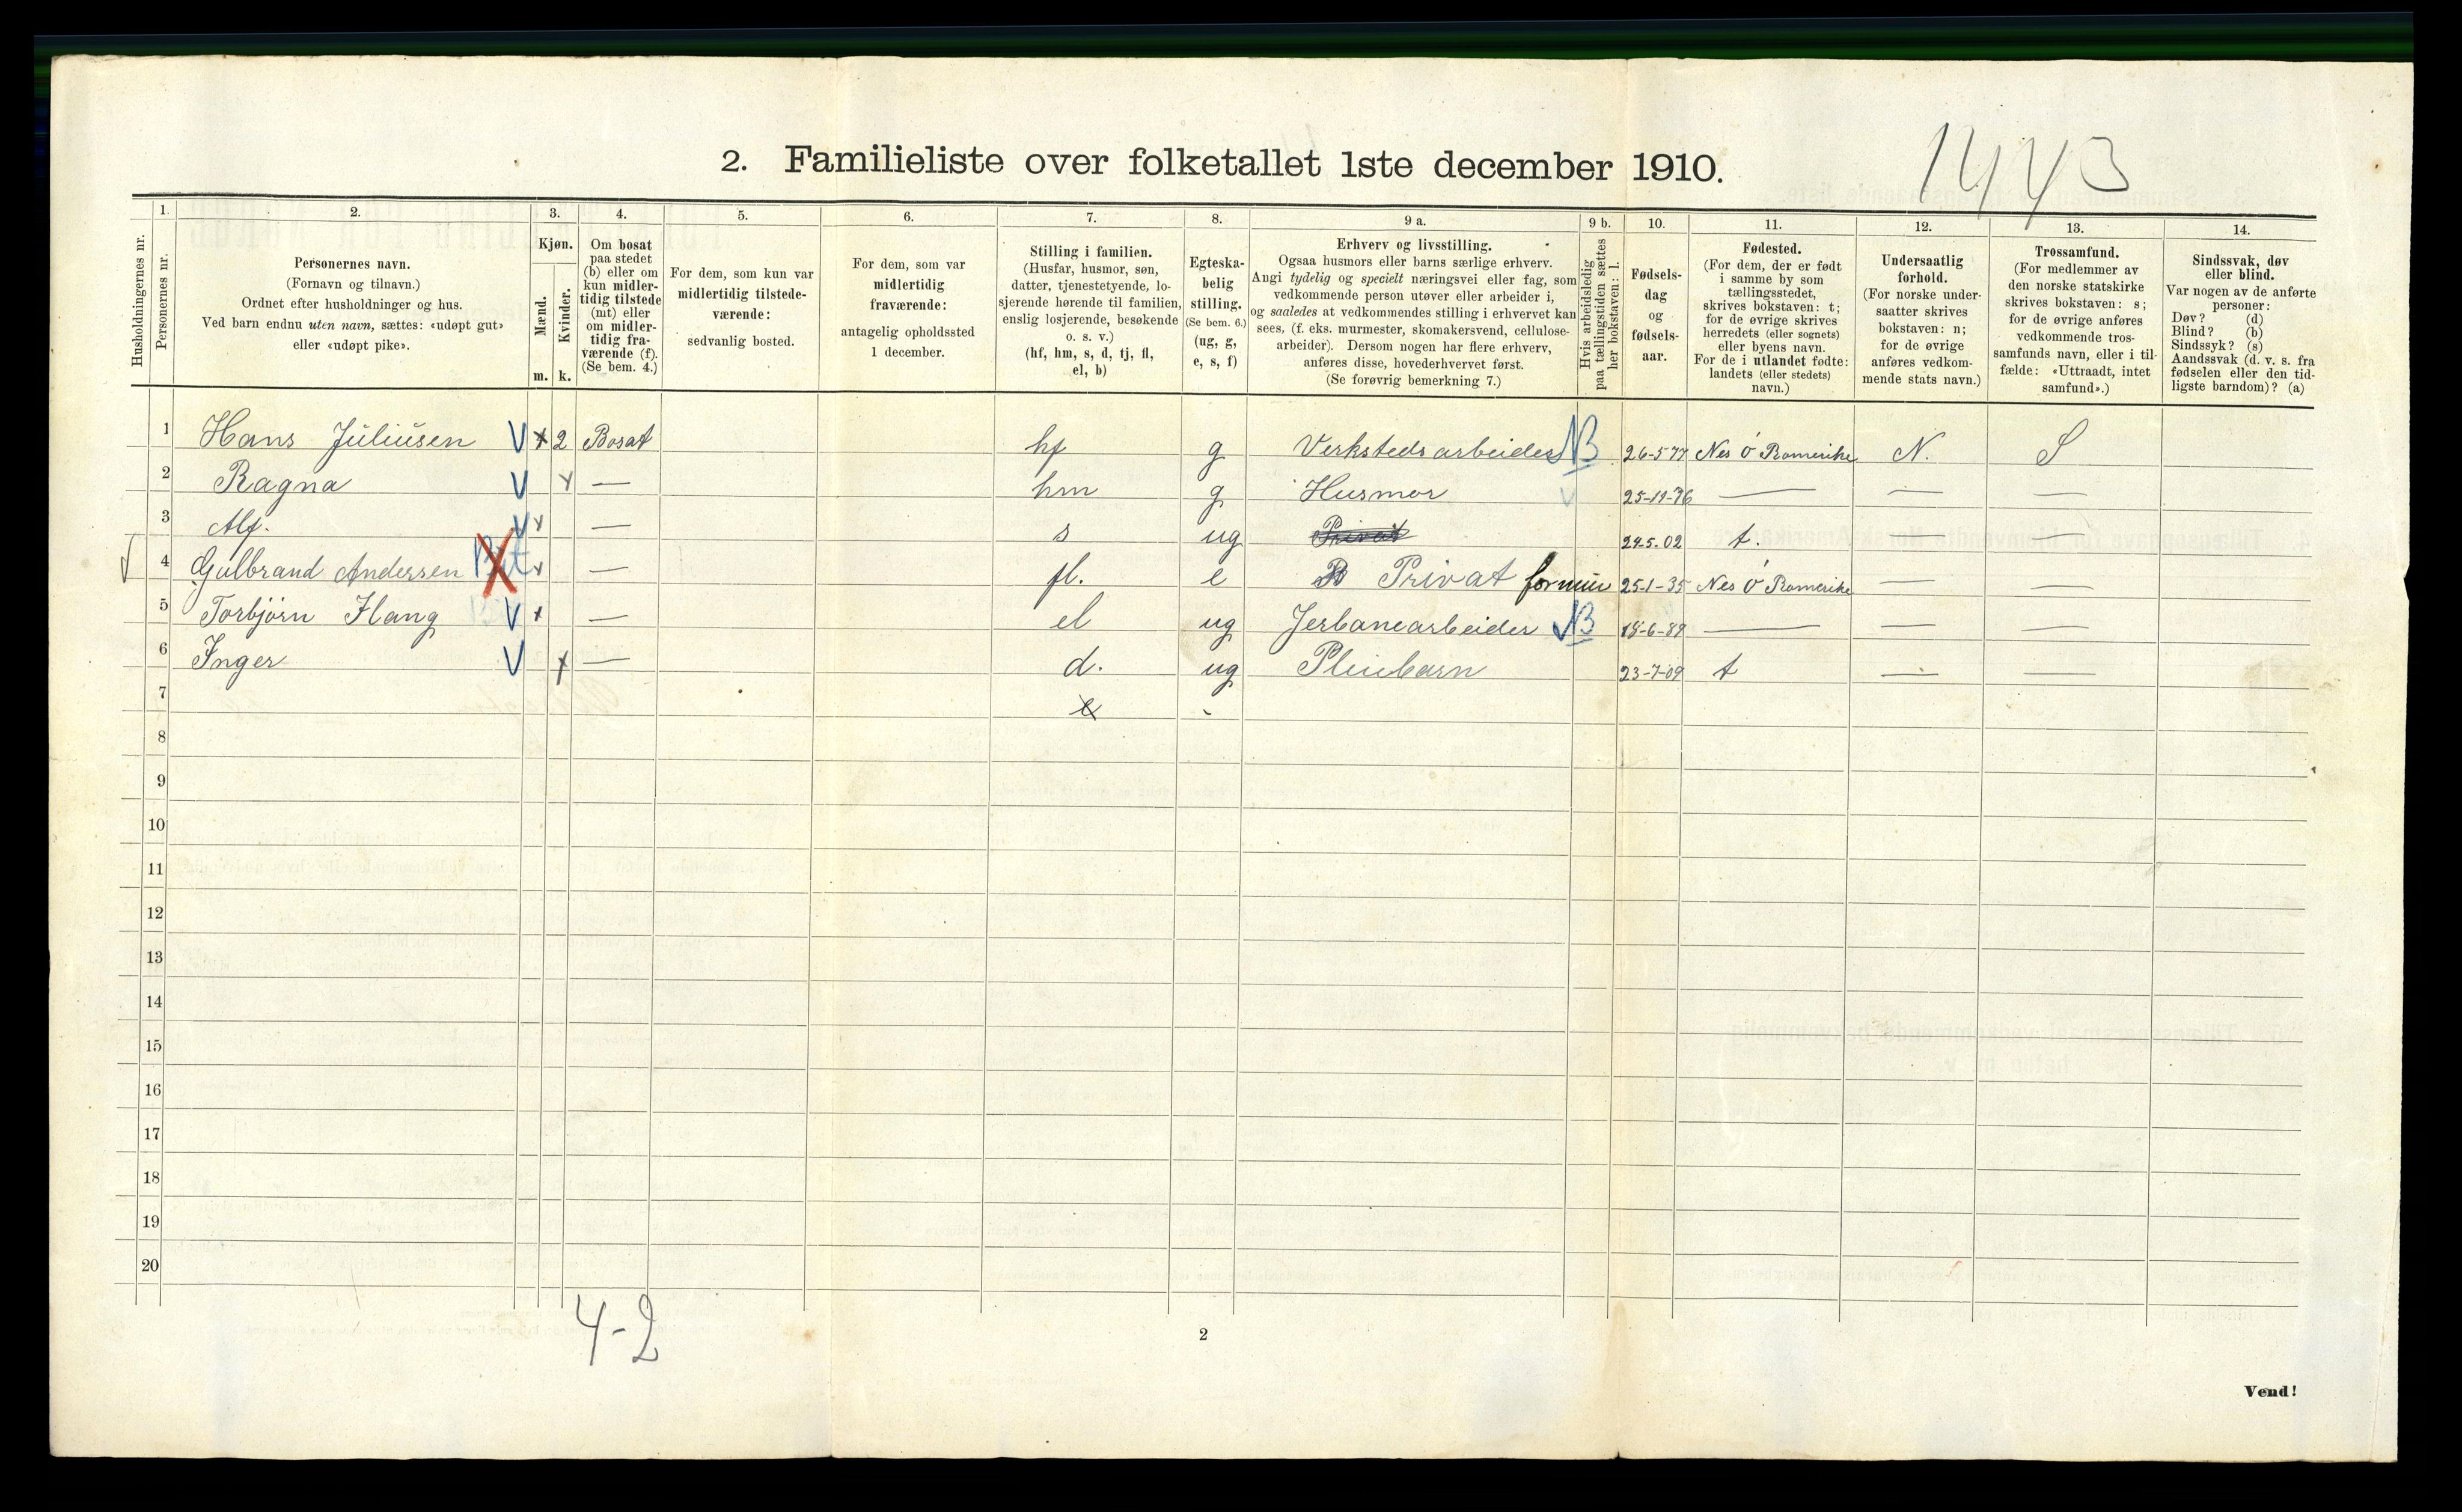 1443
2. Familieliste over folketallet 1ste december 1910.
1. 2. 3. 4. 5. 6. 7. 8. 9 a. 9 b. 10. 11. 12. 13. 14.
Husholdningernes nr.
Personernes nr.
Personernes navn.
(Fornavn og tilnavn.)
Ordnet efter husholdninger og hus.
Ved barn endnu uten navn, sættes: «udøpt gut»
eller «udøpt pike».
Kjøn.
Mænd.
Kvinder.
m. k.
Om bosat
paa stedet
(b) eller om
kun midler-
tidig tilstede
(mt) eller
om midler-
tidig fra-
værende (f).
(Se bem. 4.)
For dem, som kun var
midlertidig tilstede-
værende:
sedvanlig bosted.
For dem, som var
midlertidig
fraværende:
antagelig opholdssted
1 december.
Stilling i familien.
(Husfar, husmor, søn,
datter, tjenestetyende, lo-
sjerende hørende til familien,
enslig losjerende, besøkende
o. s. v.)
(hf, hm, s, d, tj, fl,
el, b)
Egteska-
belig
stilling.
(Se bem. 6.)
(ug, g,
e, s, f)
Erhverv og livsstilling.
Ogsaa husmors eller barns særlige erhverv.
Angi tydelig og specielt næringsvei eller fag, som
vedkommende person utøver eller arbeider i,
og saaledes at vedkommendes stilling i erhvervet kan
sees, (f. eks. murmester, skomakersvend, cellulose-
arbeider). Dersom nogen har flere erhverv,
anføres disse, hovederhvervet først.
(Se forøvrig bemerkning 7.)
Hvis arbeidsledig
paa tællingstiden sættes
her bokstaven: l.
Fødsels-
dag
og
fødsels-
aar.
Fødested.
(For dem, der er født
i samme by som
tællingsstedet,
skrives bokstaven: t;
for de øvrige skrives
herredets (eller sognets)
eller byens navn.
For de i utlandet fødte:
landets (eller stedets)
navn.)
Undersaatlig
forhold.
(For norske under-
saatter skrives
bokstaven: n;
for de øvrige
anføres vedkom-
mende stats navn.)
Trossamfund.
(For medlemmer av
den norske statskirke
skrives bokstaven: s;
for de øvrige anføres
vedkommende tros-
samfunds navn, eller i til-
fælde: «Uttraadt, intet
samfund».)
Sindssvak, døv
eller blind.
Var nogen av de anførte
personer:
Døv? (d)
Blind? (b)
Sindssyk? (s)
Aandssvak (d. v. s. fra
fødselen eller den tid-
ligste barndom)? (a)
1 Hans Juliusen V x 2 Bosat hf g Verkstedsarbeider NB 26-5 77 Nes Ó Romerike N. S
2 Ragna V x — hm g Husmor V 25-11-76 — — —
3 Alf. V x — s ug Privat 24-5.02 t.
4 Gulbrand Andersen x — fl. e Privat formue 25-1-35 Nes Ó Romerike — —
5 Torbjørn Haug V x — el ug Jerbanearbeider NB 18-6-89 — — —
6 Inger V x — d. ug Pleiebarn 23-7-09 t — —
7
8
9
10
11
12
13
14
15
16
17
18
19
20
4-2
2
Vend!